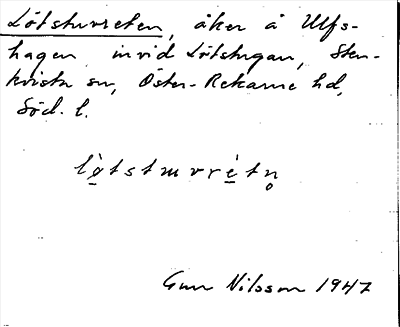 Lötstuvreten, åker å Ulfs-
hagen invid Lötstugan, Sten-
kvista sn, Öster-Rekarne hd,
Söd. l.
lø̠̀tstuvrè̠tn̥
Gun Nilsson 1947